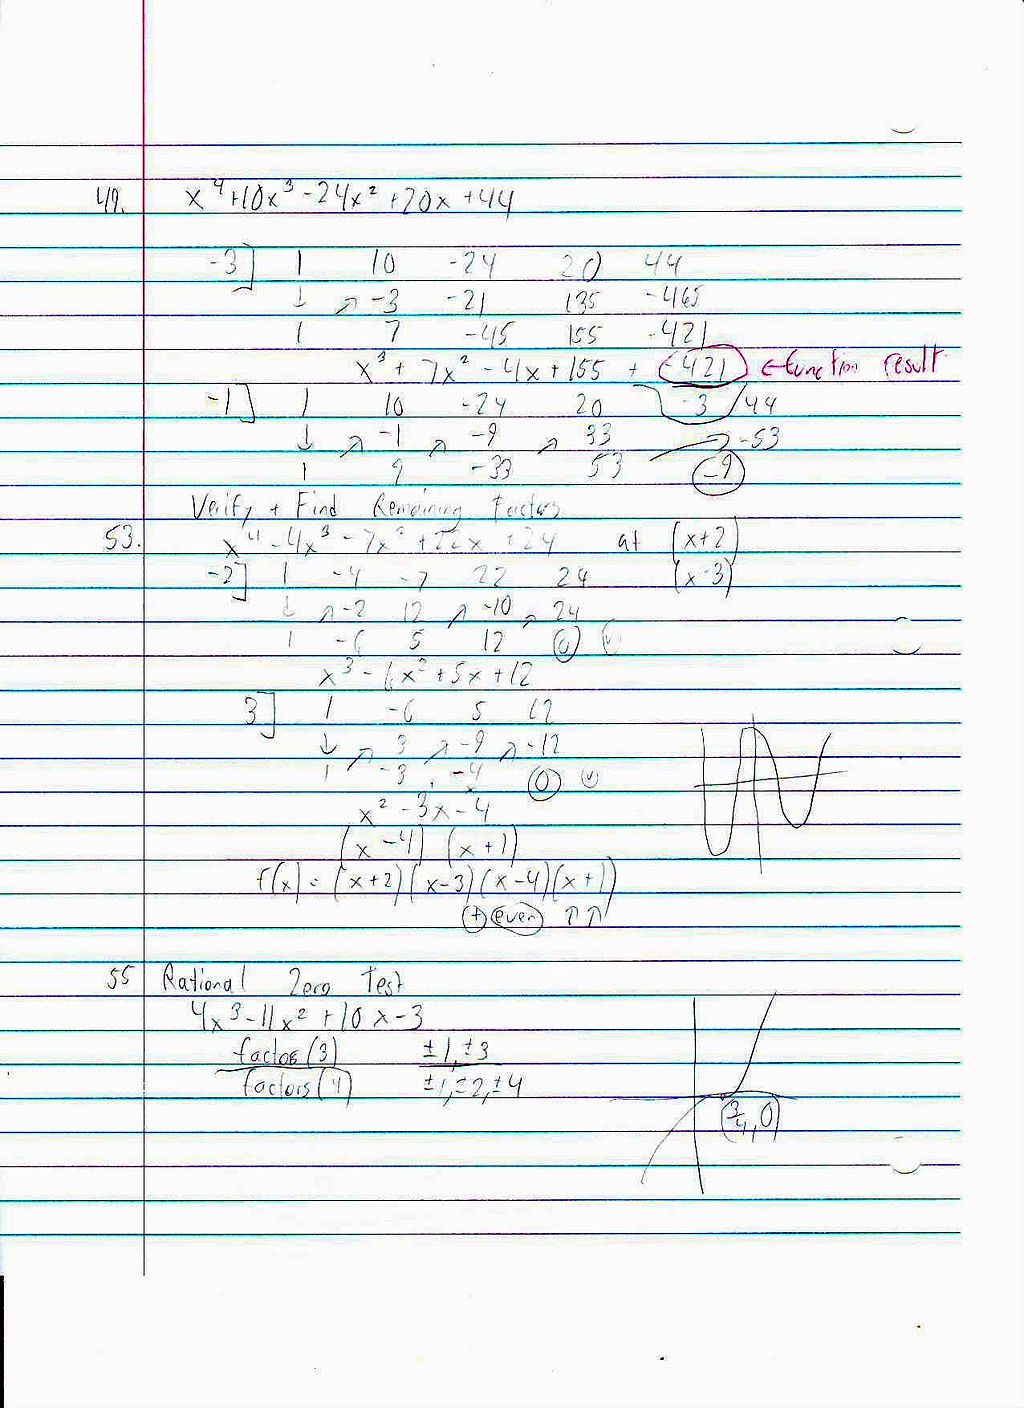 49. x⁴+10x³-24x²+20x+44
-3] 1 10 -24 20 44
↓ ↗ -3 -21 135 -465
1 7 -45 155 -421
x³ + 7x² - 4x + 155 + (-421) ← function result
-1] 1 10 -24 20 -3 / 44
↓ ↗ -1 ↗ -9 ↗ 33 → -53
1 9 -33 53 -9
Verify + Find Remaining Factors
53. x⁴ - 4x³ - 7x² + 22x + 24 at (x+2)
-2] 1 -4 -7 22 24 (x-3)
↓ ↗ -2 12 ↗ -10 → 24
1 -6 5 12 0
x³ - 6x² + 5x + 12
3] 1 -6 5 12
↓ ↗ 3 ↗ -9 ↗ -12
1 -3 -4 0
x² - 3x - 4
(x-4) (x+1)
f(x) = (x+2)(x-3)(x-4)(x+1)
(+) even ↑↑
55 Rational Zero Test
4x³-11x²+10x-3
factos (3) ±1, ±3
factors (4) ±1, ±2, ±4
(3/4, 0)